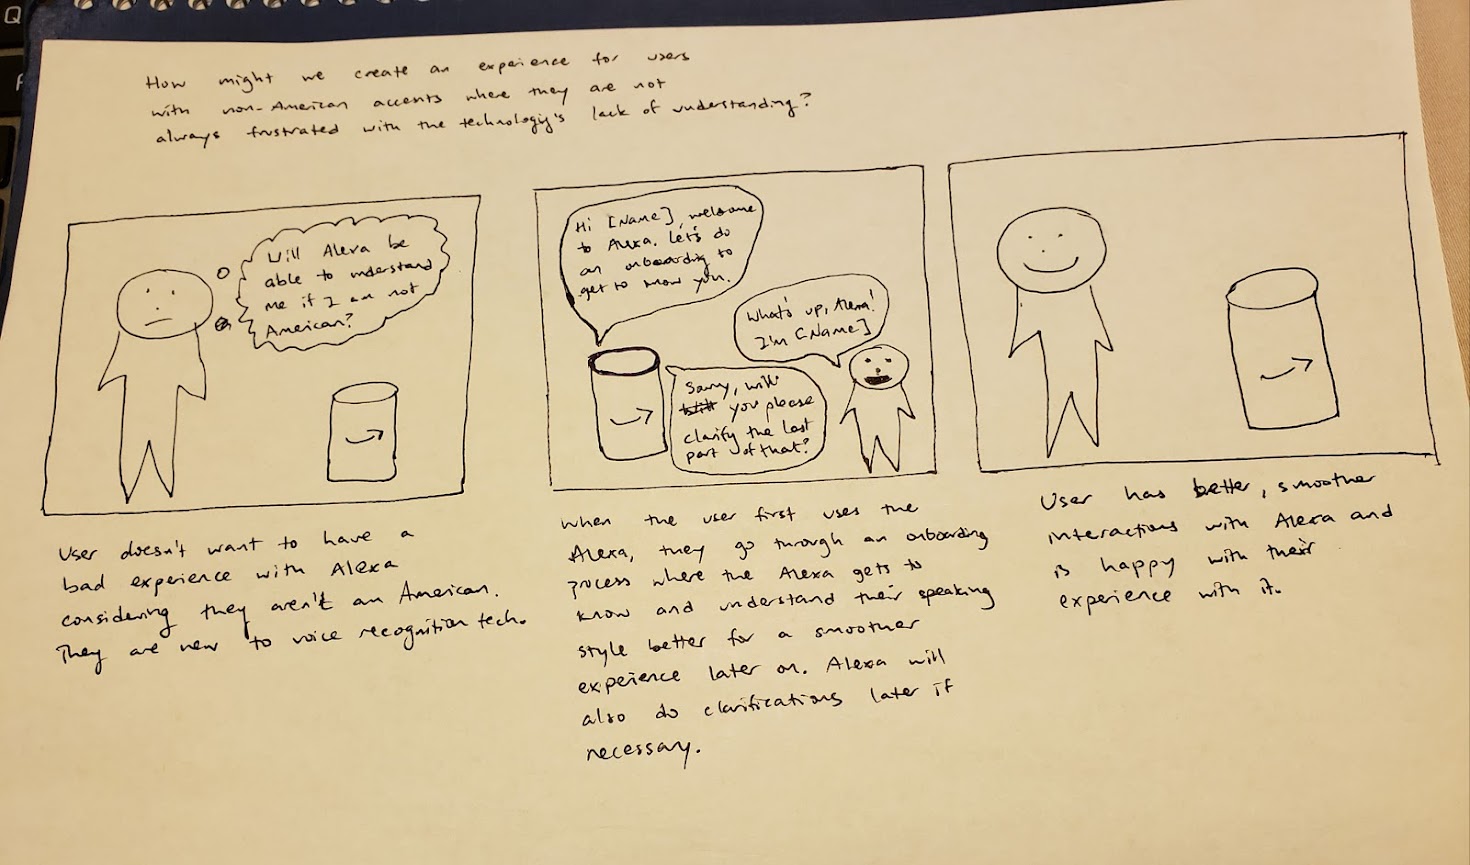 How might we create an experience for users
with non-American accents where they are not
always frustrated with the technology's lack of understanding?
Will Alexa be
able to understand
me if I am not
American?
User doesn't want to have a
bad experience with Alexa
considering they aren't an American.
They are new to voice recognition tech.
Hi [Name], welcome
to Alexa. Let's do
an onboarding to
get to know you.
What's up, Alexa!
I'm [Name]
Sorry, will
you please
clarify the last
part of that?
When the user first uses the
Alexa, they go through an onboarding
process where the Alexa gets to
know and understand their speaking
style better for a smoother
experience later on. Alexa will
also do clarifications later if
necessary.
User has better, smoother
interactions with Alexa and
is happy with their
experience with it.
Q